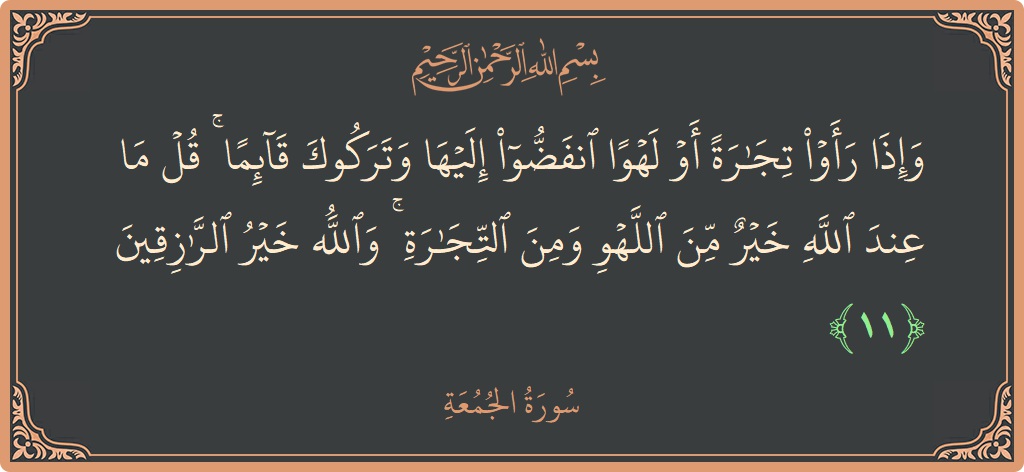 بِسْمِ اللَّهِ الرَّحْمَٰنِ الرَّحِيمِ
وَإِذَا رَأَوْا۟ تِجَـٰرَةً أَوْ لَهْوًا ٱنفَضُّوٓا۟ إِلَيْهَا وَتَرَكُوكَ قَآئِمًا ۚ قُلْ مَا
عِندَ ٱللَّهِ خَيْرٌ مِّنَ ٱللَّهْوِ وَمِنَ ٱلتِّجَـٰرَةِ ۚ وَٱللَّهُ خَيْرُ ٱلرَّٰزِقِينَ
﴿١١﴾
سُورَةُ الجُمُعَةِ